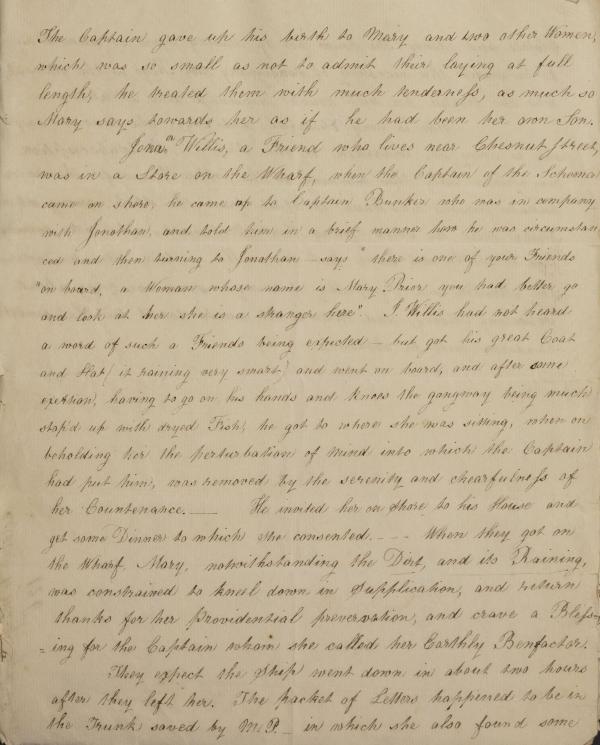 The Captain gave up his birth to Mary and two other Women,
which was so small as not to admit their laying at full
length, he treated them with much tenderness, as much so
Mary says towards her as if he had been her own Son.
Jona.n Willis, a Friend who lives near Chesnut Street,
was in a Store on the Wharf, when the Captain of the Schoma
came on shore, he came up to Captain Bunker who was in company
with Jonathan, and told him in a brief manner how he was circumstan
ced and then turning to Jonathan — says "there is one of your Friends
"on board, a Woman whose name is Mary Prior you had better go
and look at her she is a stranger here". J. Willis had not heard
a word of such a Friends being expected — but got his great Coat
and Hat (it raining very smart) and went on board, and after some
exertion, having to go on his hands and knees the gangway being much
stop'd up with dryed Fish, he got to where she was sitting, when on
beholding her the perturbation of mind into which the Captain
had put him, was removed by the serenity and chearfulness of
her Countenance. — He invited her on shore to his House and
get some Dinner to which she consented. - - - When they got on
the Wharf, Mary, notwithstanding the Dirt, and its Raining,
was constrained to kneel down in Supplication, and return
thanks for her Providential preservation, and crave a Bless-
=ing for the Captain whom she called her Earthly Benfactor.
They expect the Ship went down in about two hours
after they left her. The packet of Letters happened to be in
the Trunk saved by M. P. — in which she also found some